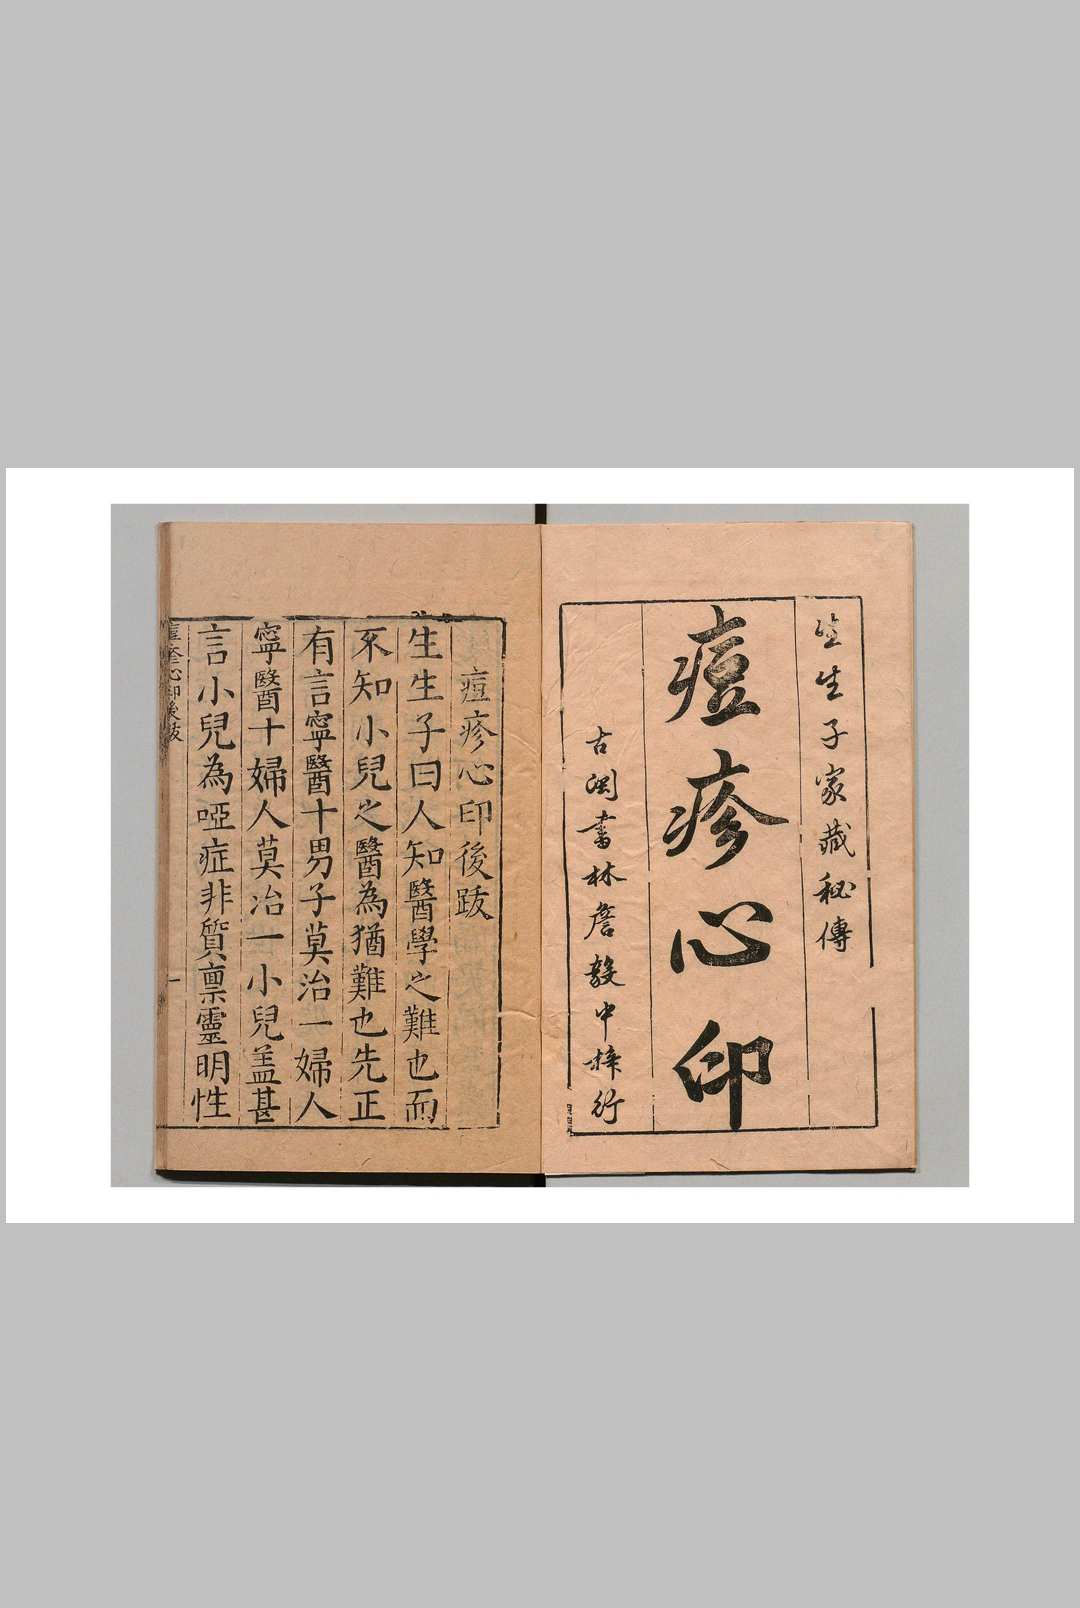 生生子家藏秘傳
痘疹心印
古閩書林詹毅中梓行
痘疹心印後跋
生生子曰人知醫學之難也而
不知小兒之醫為猶難也先正
有言寧醫十男子莫治一婦人
寧醫十婦人莫治一小兒盖甚
言小兒為啞症非質禀靈明性
痘疹心印後跋
一